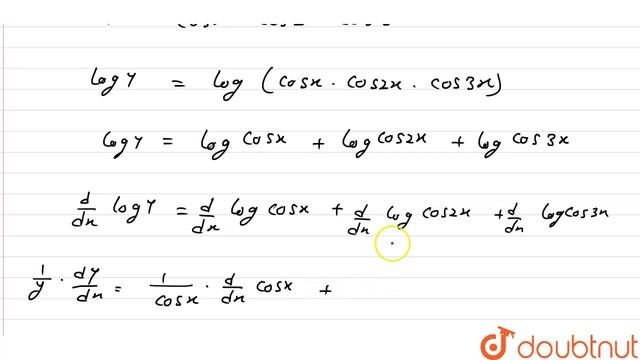 log y = log (cosx · cos2x · cos3x)
log y = log cosx + log cos2x + log cos3x
d/dx log y = d/dx log cosx + d/dx log cos2x + d/dx log cos3x
1/y · dy/dx = 1/cosx · d/dx cosx +
doubtnut